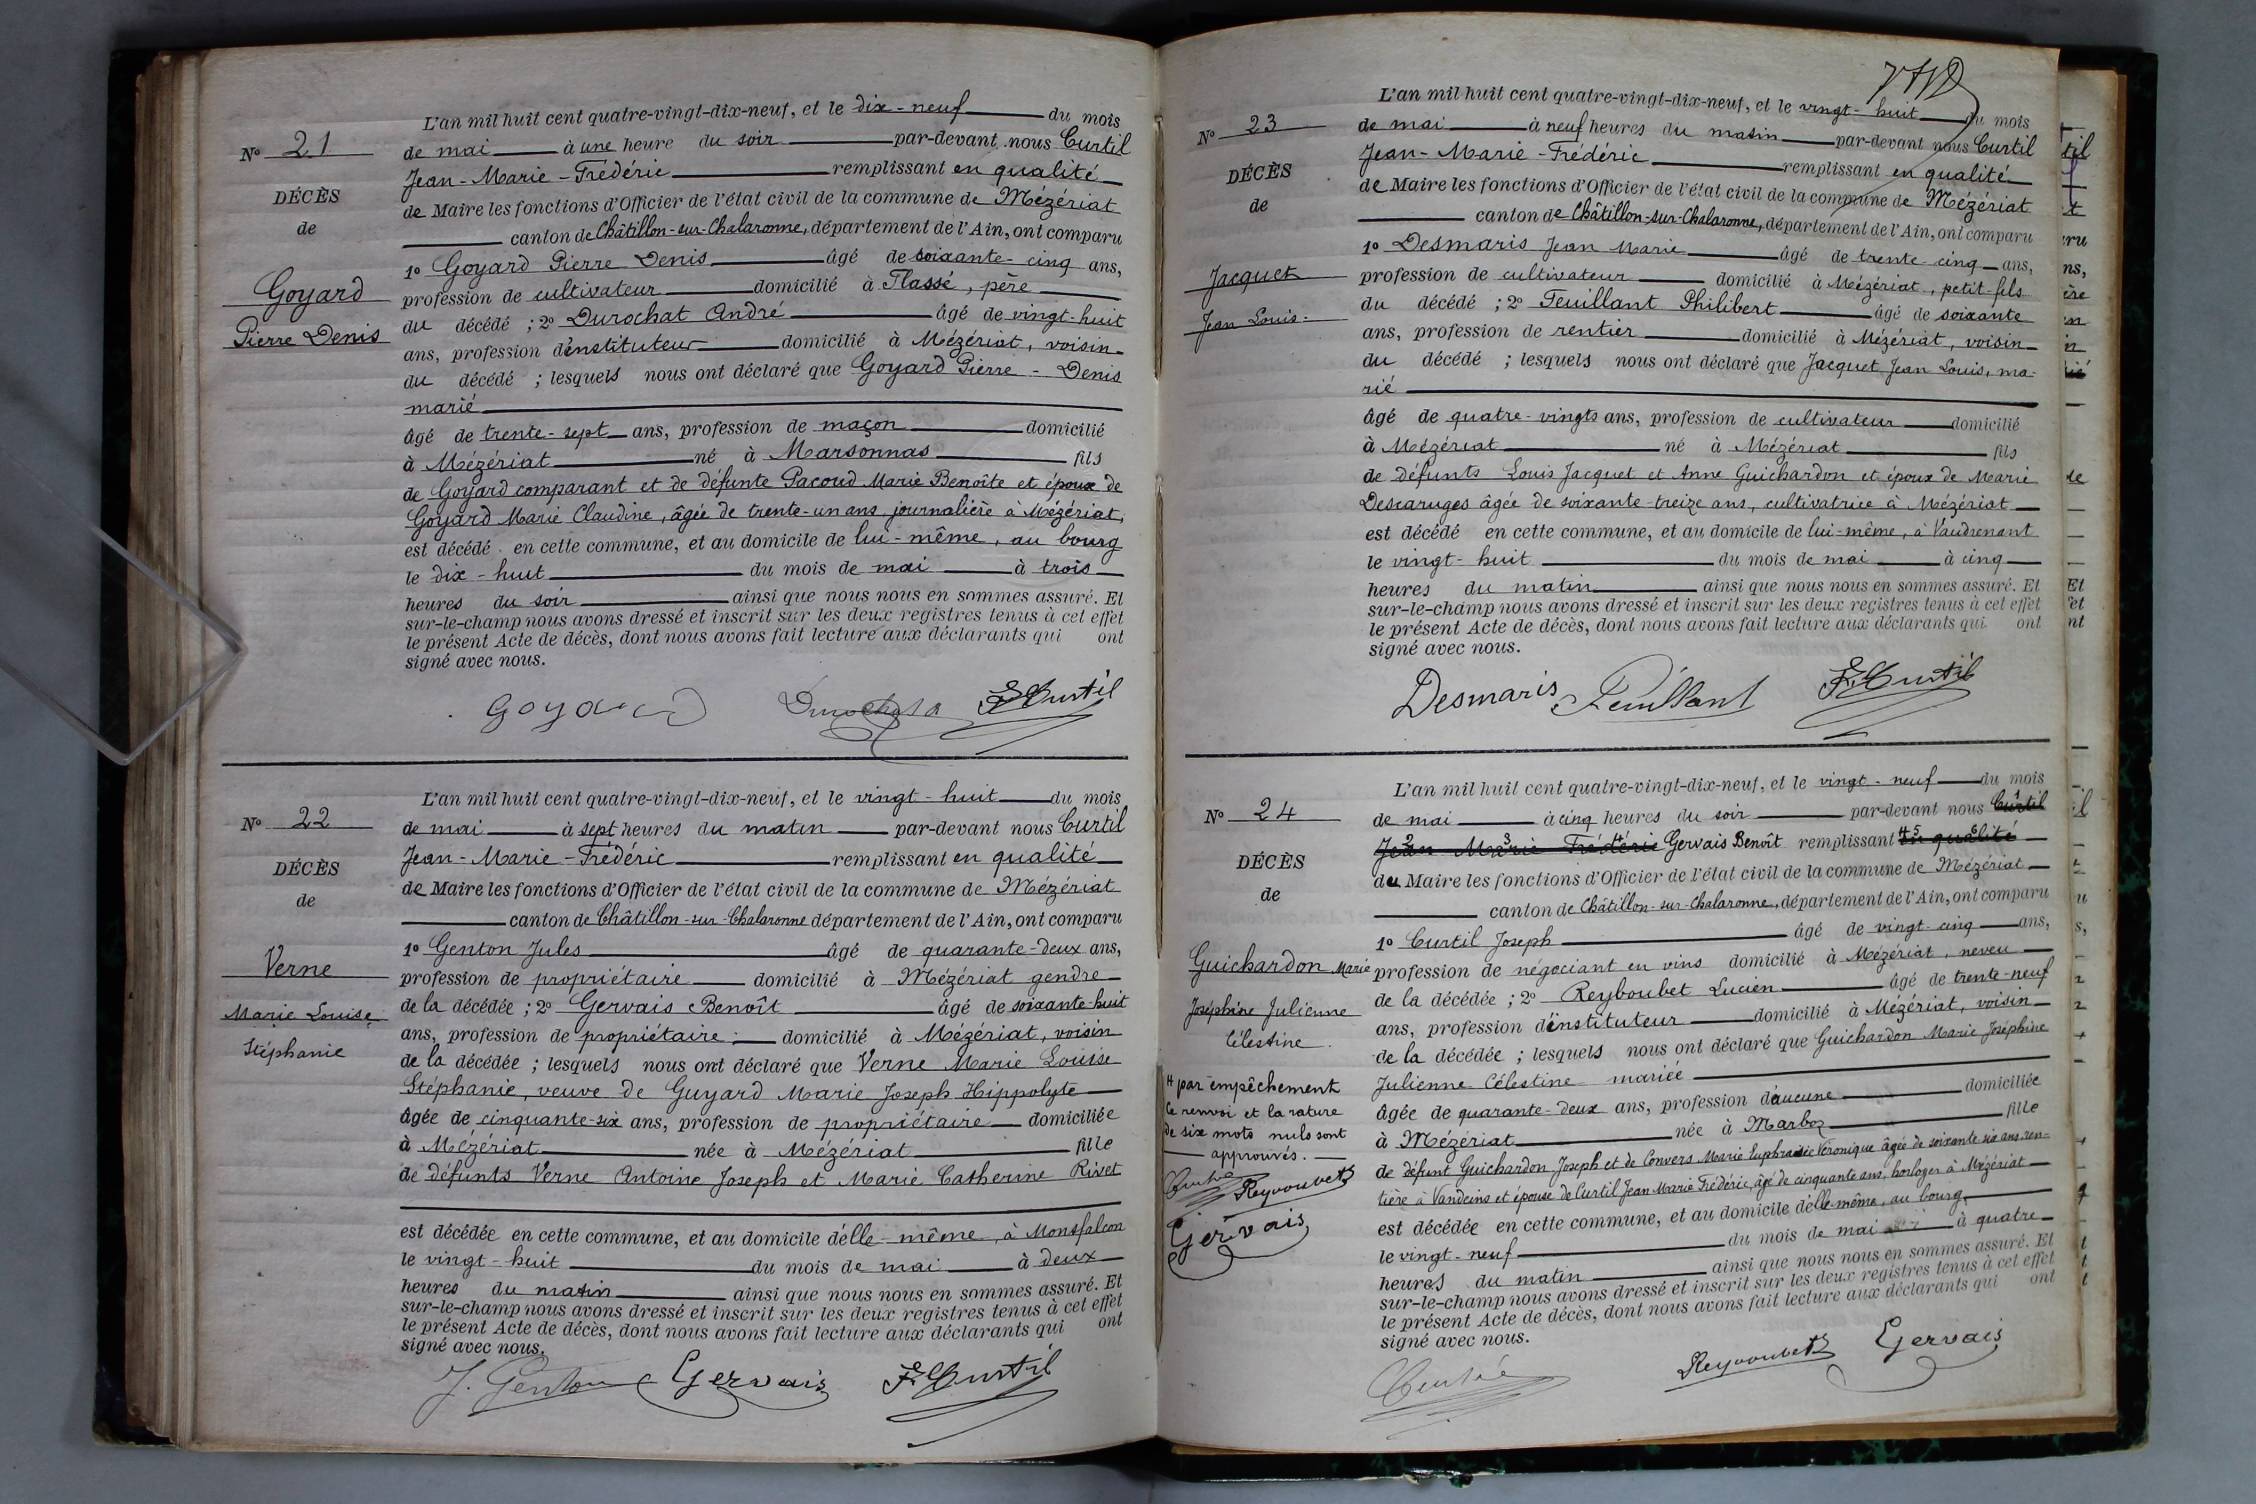 L'an mil huit cent quatre-vingt-dix-neuf, et le dix-neuf du mois
N° 21
de mai à une heure du soir par-devant nous Curtil
Jean-Marie-Frédéric remplissant en qualité
DÉCÈS
de Maire les fonctions d'Officier de l'état civil de la commune de Mézériat
de
canton de Châtillon-sur-Chalaronne, département de l'Ain, ont comparu
1° Goyard Pierre Denis âgé de soixante-cinq ans,
Goyard
profession de cultivateur domicilié à Flassé, père
Pierre Denis
du décédé ; 2° Durochat André âgé de vingt-huit
ans, profession d'instituteur domicilié à Mézériat, voisin
du décédé ; lesquels nous ont déclaré que Goyard Pierre-Denis
marié
âgé de trente-sept ans, profession de maçon domicilié
à Mézériat né à Marsonnas fils
de Goyard comparant et de défunte Pacoud Marie Benoîte et époux de
Goyard Marie Claudine, âgée de trente-un ans journalière à Mézériat,
est décédé en cette commune, et au domicile de lui-même, au bourg
le dix-huit du mois de mai à trois
heures du soir ainsi que nous nous en sommes assuré. Et
sur-le-champ nous avons dressé et inscrit sur les deux registres tenus à cet effet
le présent Acte de décès, dont nous avons fait lecture aux déclarants qui ont
signé avec nous.
Goyard Durochat F. Curtil
L'an mil huit cent quatre-vingt-dix-neuf, et le vingt-huit du mois
N° 22
de mai à sept heures du matin par-devant nous Curtil
Jean-Marie-Frédéric remplissant en qualité
DÉCÈS
de Maire les fonctions d'Officier de l'état civil de la commune de Mézériat
de
canton de Châtillon-sur-Chalaronne département de l'Ain, ont comparu
1° Genton Jules âgé de quarante-deux ans,
Verne
profession de propriétaire domicilié à Mézériat gendre
Marie Louise
de la décédée ; 2° Gervais Benoît âgé de soixante-huit
Stéphanie
ans, profession de propriétaire domicilié à Mézériat, voisin
de la décédée ; lesquels nous ont déclaré que Verne Marie Louise
Stéphanie, veuve de Guyard Marie Joseph Hippolyte
âgée de cinquante-six ans, profession de propriétaire domiciliée
à Mézériat née à Mézériat fille
de défunts Verne Antoine Joseph et Marie Catherine Rivet
est décédée en cette commune, et au domicile d'elle-même, à Monsfalcon
le vingt-huit du mois de mai à deux
heures du matin ainsi que nous nous en sommes assuré. Et
sur-le-champ nous avons dressé et inscrit sur les deux registres tenus à cet effet
le présent Acte de décès, dont nous avons fait lecture aux déclarants qui ont
signé avec nous.
J. Genton Gervais F. Curtil
L'an mil huit cent quatre-vingt-dix-neuf, et le vingt-huit du mois
N° 23
de mai à neuf heures du matin par-devant nous Curtil
Jean-Marie-Frédéric remplissant en qualité
DÉCÈS
de Maire les fonctions d'Officier de l'état civil de la commune de Mézériat
de
canton de Châtillon-sur-Chalaronne, département de l'Ain, ont comparu
1° Desmaris Jean Marie âgé de trente-cinq ans,
Jacquet
profession de cultivateur domicilié à Mézériat, petit-fils
Jean Louis
du décédé ; 2° Feuillant Philibert âgé de soixante
ans, profession de rentier domicilié à Mézériat, voisin
du décédé ; lesquels nous ont déclaré que Jacquet Jean Louis, ma-
rié
âgé de quatre-vingts ans, profession de cultivateur domicilié
à Mézériat né à Mézériat fils
de défunts Louis Jacquet et Anne Guichardon et époux de Marie
Descaruges âgée de soixante-treize ans, cultivatrice à Mézériat
est décédé en cette commune, et au domicile de lui-même, à Vaudrenant
le vingt-huit du mois de mai à cinq
heures du matin ainsi que nous nous en sommes assuré. Et
sur-le-champ nous avons dressé et inscrit sur les deux registres tenus à cet effet
le présent Acte de décès, dont nous avons fait lecture aux déclarants qui ont
signé avec nous.
Desmaris Feuillant F. Curtil
L'an mil huit cent quatre-vingt-dix-neuf, et le vingt-neuf du mois
N° 24
de mai à cinq heures du soir par-devant nous Curtil
Jean Marie Frédéric Gervais Benoît remplissant en qualité
DÉCÈS
du Maire les fonctions d'Officier de l'état civil de la commune de Mézériat
de
canton de Châtillon-sur-Chalaronne, département de l'Ain, ont comparu
1° Curtil Joseph âgé de vingt-cinq ans,
Guichardon Marie
profession de négociant en vins domicilié à Mézériat, neveu
Joséphine Julienne
de la décédée ; 2° Reyboubet Lucien âgé de trente-neuf
Célestine
ans, profession d'instituteur domicilié à Mézériat, voisin
de la décédée ; lesquels nous ont déclaré que Guichardon Marie Joséphine
Julienne Célestine mariée
âgée de quarante-deux ans, profession d'aucune domiciliée
à Mézériat née à Marboz fille
de défunt Guichardon Joseph et de Convers Marie Euphrasie Véronique âgée de soixante six ans, ren-
tière à Vandeins et épouse de Curtil Jean Marie Frédéric, âgé de cinquante ans, horloger à Mézériat
est décédée en cette commune, et au domicile d'elle-même, au bourg,
le vingt-neuf du mois de mai à quatre
heures du matin ainsi que nous nous en sommes assuré. Et
sur-le-champ nous avons dressé et inscrit sur les deux registres tenus à cet effet
le présent Acte de décès, dont nous avons fait lecture aux déclarants qui ont
signé avec nous.
par empêchement
Le renvoi et la rature
de six mots nuls sont
approuvés.
Reyboubet
Gervais
Reyboubet Gervais